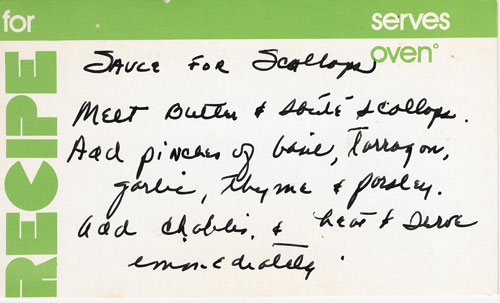 for serves
RECIPE oven°
Sauce for Scallops
Melt Butter & Sauté scallops.
Add pinches of basil, tarragon,
garlic, thyme & parsley.
Add chablis, & heat & serve
immediately.